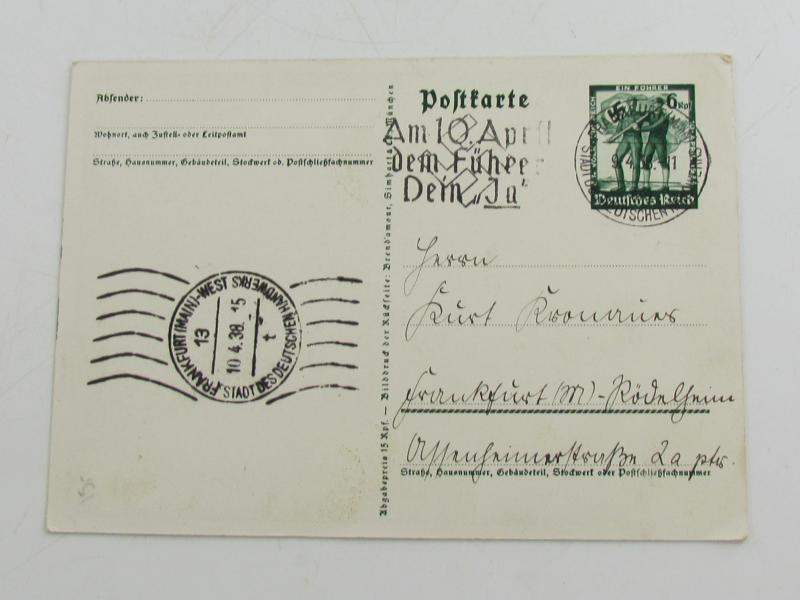 Absender:
Wohnort, auch Zustell- oder Leitpostamt
Straße, Hausnummer, Gebäudeteil, Stockwerk od. Postschließfachnummer
FRANKFURT (MAIN)-WEST
13
10.4.38.-15
t
STADT DES DEUTSCHEN HANDWERKS
Abgabepreis 15 Rpf. — Bilddruck der Rückseite: Brend'amour, Simhart & Co., München
Postkarte
Am 10. April
dem Führer
Dein „Ja"
EIN FÜHRER
6 Rpf
Deutsches Reich
FRANKFURT
9.4.38.-11
STADT DEUTSCHEN
Herrn
Kurt Kronauer
Frankfurt (M)-Rödelheim
Assenheimerstraße 2a ptr.
Straße, Hausnummer, Gebäudeteil, Stockwerk oder Postschließfachnummer